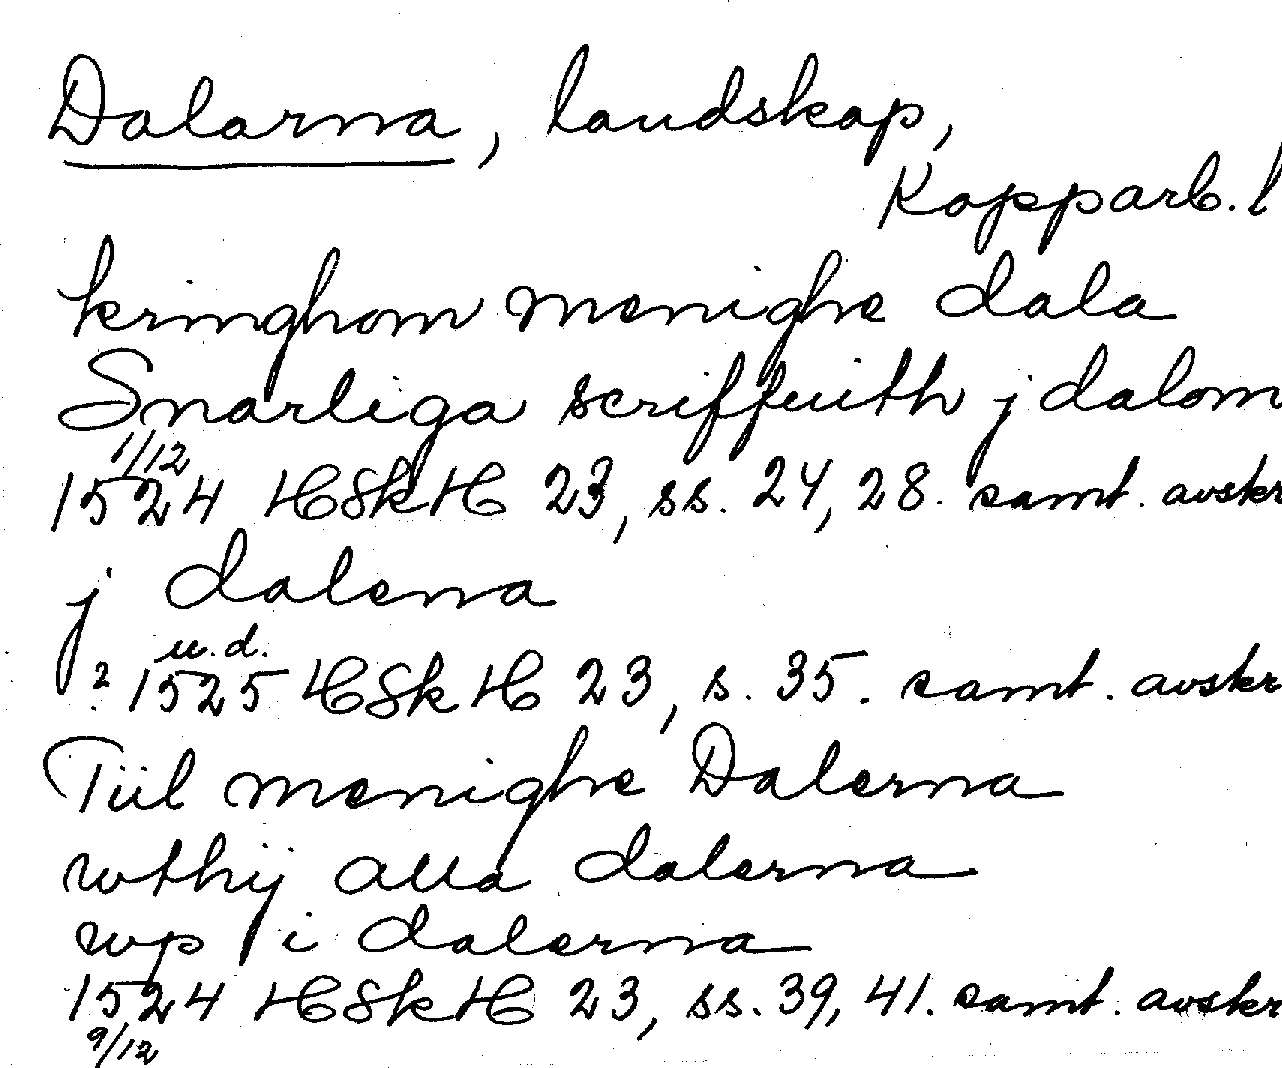 Dalarna, landskap,
Kopparb. l
kringhom menighe dala
Snarliga scriffuith j dalom
1/12
1524 HSkH 23, ss. 24, 28. samt. avskr
j dalena
u. d.
? 1525 HSkH 23, s. 35. samt. avskr
Tiil menighe Dalerna
wthij alla dalerna
wp i dalerna
1524 HSkH 23, ss. 39, 41. samt. avskr
9/12